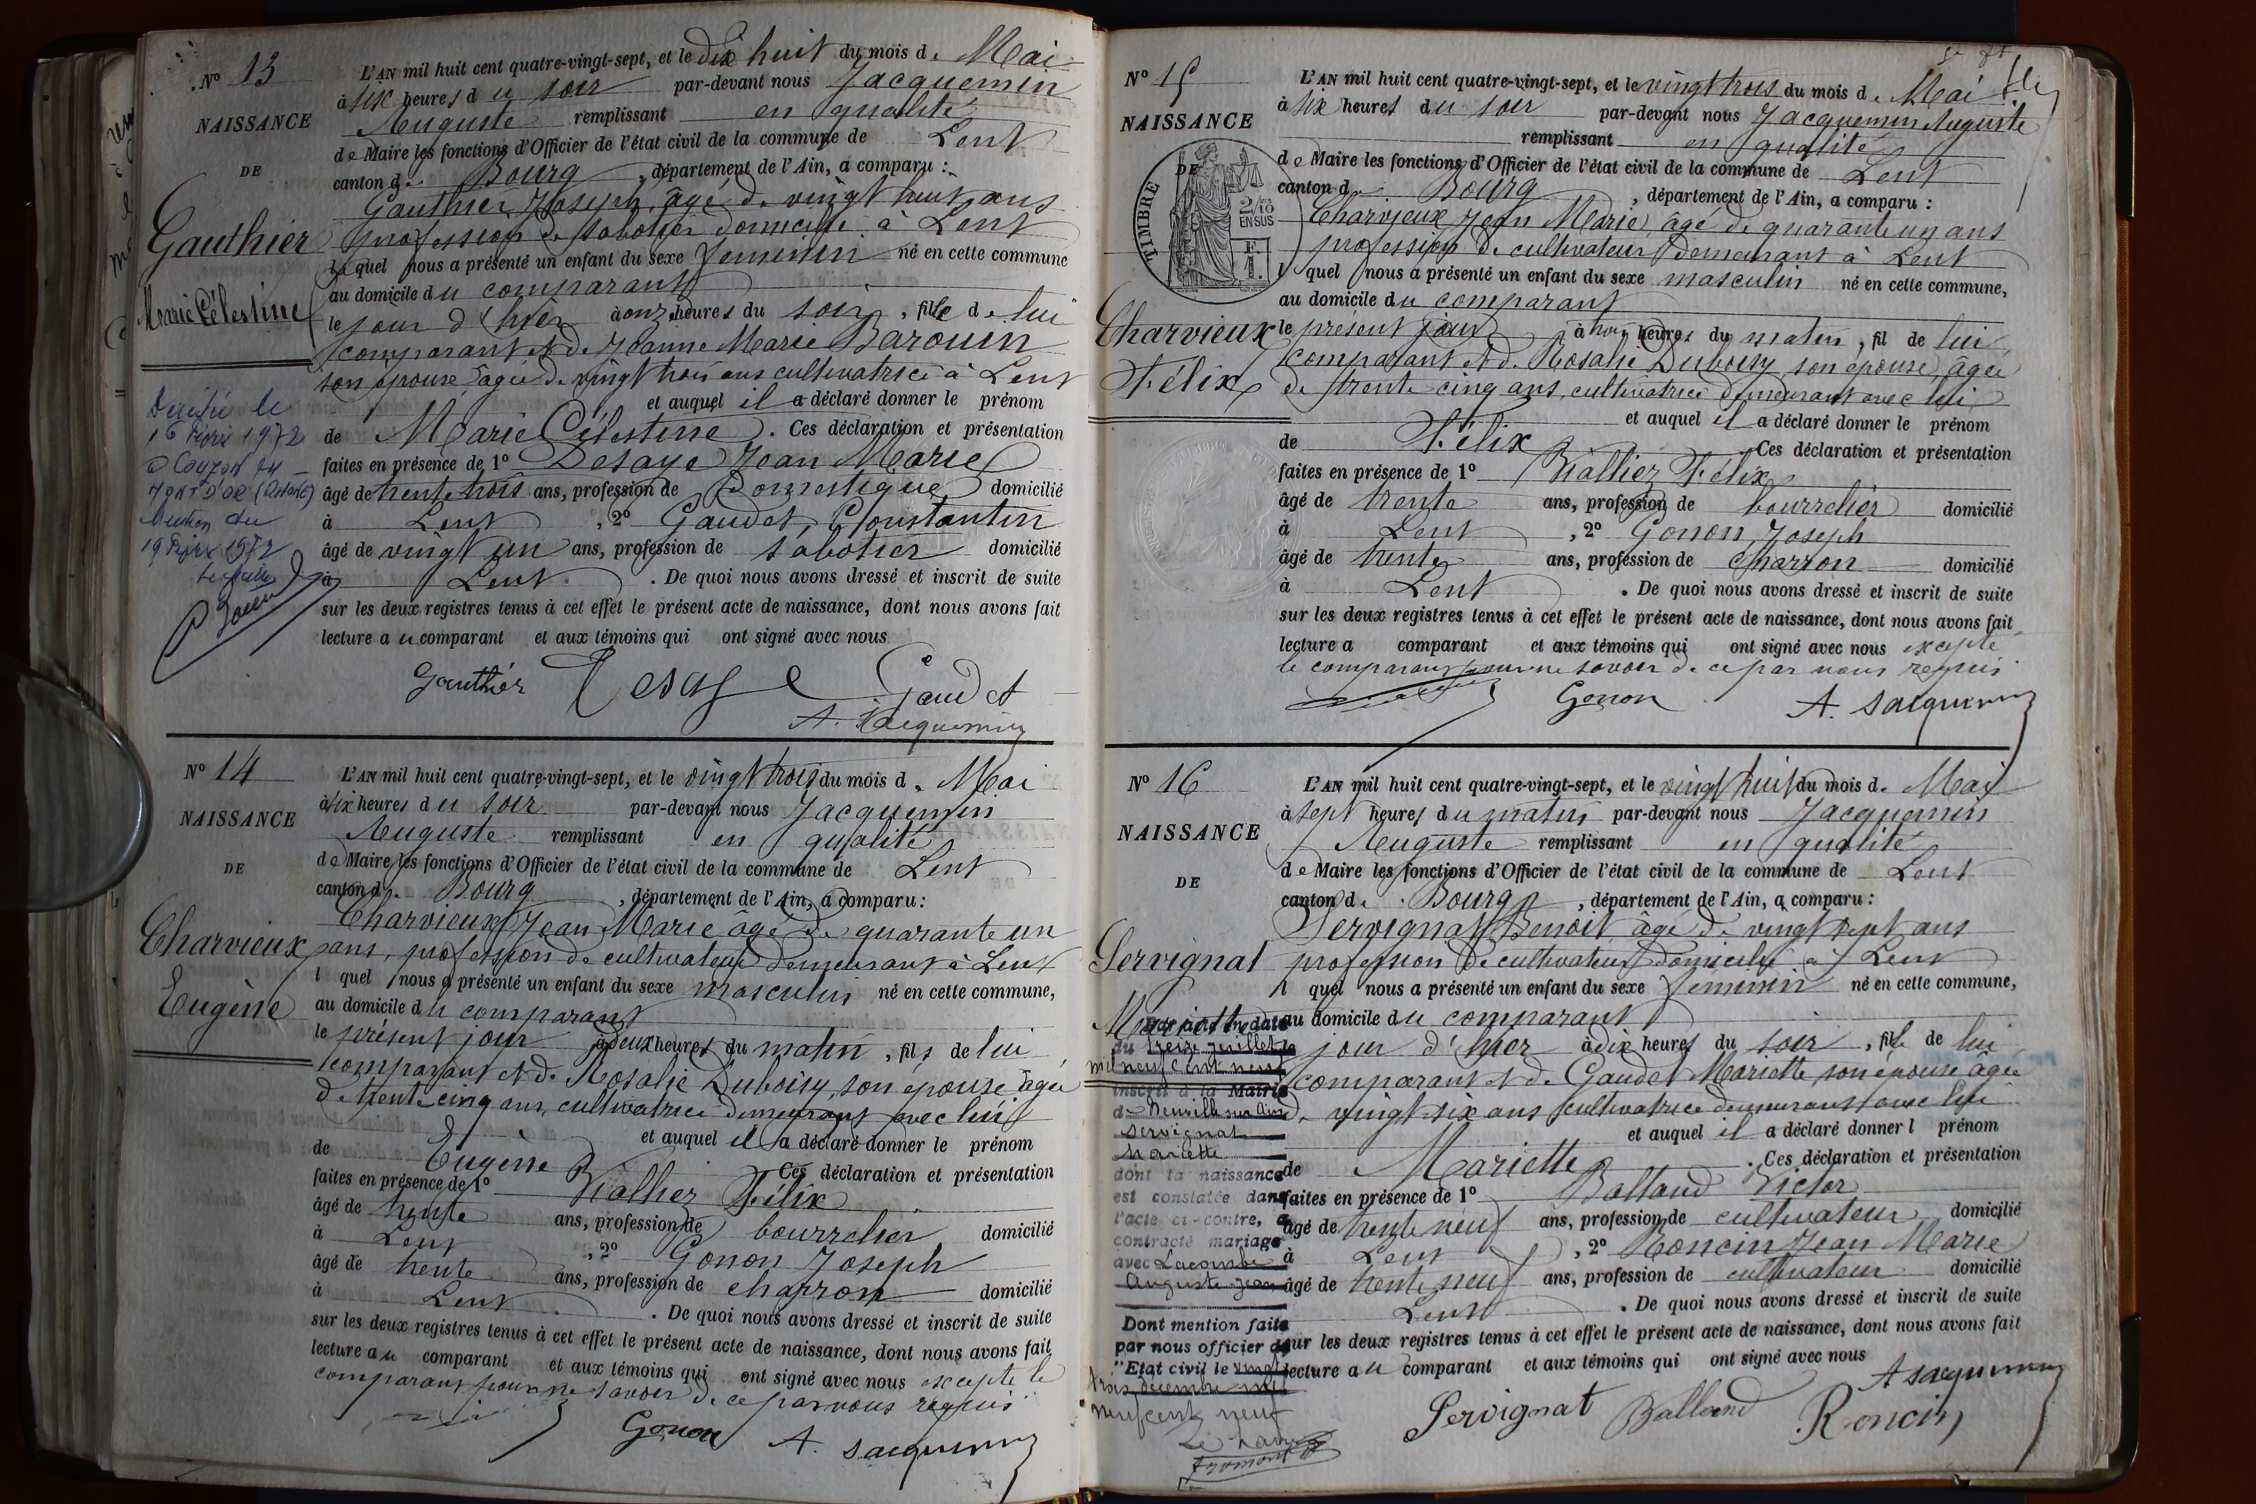 Nº 13
NAISSANCE
DE
Gauthier
Marie Célestine
Décédée le
16 Février 1972
à Couzon au
Mont d'Or (Rhône)
Mention du
19 Février 1972
L'AN mil huit cent quatre-vingt-sept, et le dix huit du mois de Mai
à six heures du soir par-devant nous Jacquemin
Auguste remplissant en qualité
de Maire les fonctions d'Officier de l'état civil de la commune de Lent
canton de Bourg, département de l'Ain, a comparu :
Gauthier Joseph, âgé de vingt huit ans
profession de sabotier domicilié à Lent
lequel nous a présenté un enfant du sexe féminin né en cette commune
au domicile du comparant
le jour d'hier à onze heures du soir, fille de lui
comparant et de Jeanne Marie Barouin
son épouse âgée de vingt trois ans cultivatrice à Lent
et auquel il a déclaré donner le prénom
de Marie Célestine. Ces déclaration et présentation
faites en présence de 1º Desaye Jean Marie
âgé de trente trois ans, profession de Domestique domicilié
à Lent, 2º Gaudet, Constantin
âgé de vingt un ans, profession de sabotier domicilié
à Lent. De quoi nous avons dressé et inscrit de suite
sur les deux registres tenus à cet effet le présent acte de naissance, dont nous avons fait
lecture au comparant et aux témoins qui ont signé avec nous
Gauthier Desaye Gaudet
A. Jacquemin
Nº 14
NAISSANCE
DE
Charvieux
Eugène
L'AN mil huit cent quatre-vingt-sept, et le vingt trois du mois de Mai
à six heures du soir par-devant nous Jacquemin
Auguste remplissant en qualité
de Maire les fonctions d'Officier de l'état civil de la commune de Lent
canton de Bourg, département de l'Ain, a comparu :
Charvieux Jean Marie âgé de quarante un
ans, profession de cultivateur demeurant à Lent
lquel nous a présenté un enfant du sexe masculin né en cette commune,
au domicile du comparant
le présent jour à deux heures du matin, fils de lui
comparant et de Rosalie Duboisy, son épouse âgée
de trente cinq ans, cultivatrice demeurant avec lui
et auquel il a déclaré donner le prénom
de Eugène Ces déclaration et présentation
faites en présence de 1º Vialliez Félix
âgé de trente ans, profession de bourrelier domicilié
à Lent, 2º Gonon Joseph
âgé de trente ans, profession de charron domicilié
à Lent. De quoi nous avons dressé et inscrit de suite
sur les deux registres tenus à cet effet le présent acte de naissance, dont nous avons fait
lecture au comparant et aux témoins qui ont signé avec nous excepté le
comparant pour ne savoir de ce par nous requis
Gonon A. Jacquemin
Nº 15
NAISSANCE
DE
TIMBRE
2/10
EN SUS
F.
1.
Charvieux
Félix
L'AN mil huit cent quatre-vingt-sept, et le vingt trois du mois de Mai
à six heures du soir par-devant nous Jacquemin Auguste
remplissant en qualité
de Maire les fonctions d'Officier de l'état civil de la commune de Lent
canton de Bourg, département de l'Ain, a comparu :
Charvieux Jean Marie, âgé de quarante un ans
profession de cultivateur demeurant à Lent
lquel nous a présenté un enfant du sexe masculin né en cette commune,
au domicile du comparant
le présent jour à heures du matin, fil de lui
comparant et de Rosalie Duboisy son épouse, âgée
de trente cinq ans, cultivatrice demeurant avec lui
et auquel il a déclaré donner le prénom
de Félix Ces déclaration et présentation
faites en présence de 1º Vialliez Félix
âgé de trente ans, profession de bourrelier domicilié
à Lent, 2º Gonon, Joseph
âgé de trente ans, profession de charron domicilié
à Lent. De quoi nous avons dressé et inscrit de suite
sur les deux registres tenus à cet effet le présent acte de naissance, dont nous avons fait
lecture a comparant et aux témoins qui ont signé avec nous excepté
le comparant pour ne savoir de ce par nous requis
Gonon A. Jacquemin
Nº 16
NAISSANCE
DE
Servignat
Mariette
Par acte en date
du treize juillet
mil neuf cent neuf
inscrit à la Mairie
de Neuville sur Ain
Servignat
Mariette
dont la naissance
est constatée dans
l'acte ci-contre, a
contracté mariage
avec Lacombe
Auguste Jean
Dont mention faite
par nous officier de
l'Etat civil le vingt
trois décembre mil
neuf cent neuf
Le Maire
Fromont
L'AN mil huit cent quatre-vingt-sept, et le vingt huit du mois de Mai
à sept heures du matin par-devant nous Jacquemin
Auguste remplissant en qualité
de Maire les fonctions d'Officier de l'état civil de la commune de Lent
canton de Bourg, département de l'Ain, a comparu :
Servignat Benoit âgé de vingt sept ans
profession de cultivateur domicilié à Lent
lquel nous a présenté un enfant du sexe féminin né en cette commune,
au domicile du comparant
le jour d'hier à dix heures du soir, fille de lui
comparant et de Gaudet Mariette son épouse âgée
de vingt-six ans cultivatrice demeurant avec lui
et auquel il a déclaré donner l prénom
de Mariette. Ces déclaration et présentation
faites en présence de 1º Balland Victor
âgé de trente neuf ans, profession de cultivateur domicilié
à Lent, 2º Roncin Jean Marie
âgé de trente neuf ans, profession de cultivateur domicilié
Lent. De quoi nous avons dressé et inscrit de suite
sur les deux registres tenus à cet effet le présent acte de naissance, dont nous avons fait
lecture au comparant et aux témoins qui ont signé avec nous
A Jacquemin
Servignat Balland Roncin